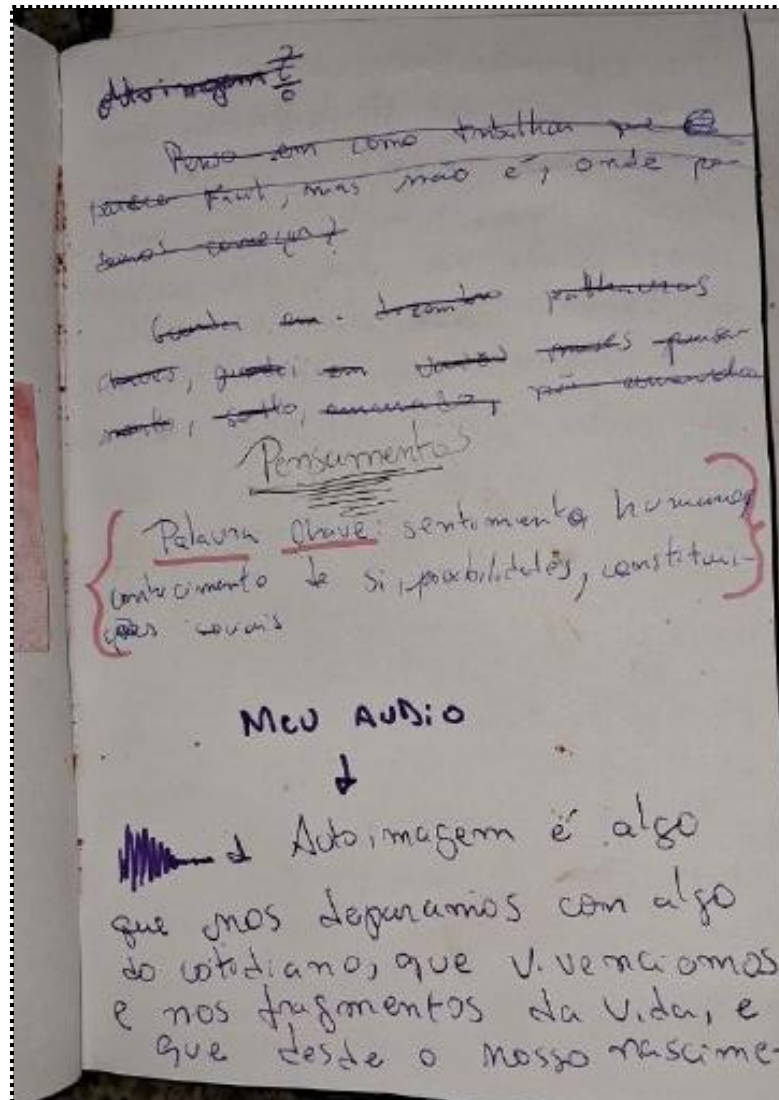 Autoimagem
Penso em como trabalhar que
parece Facil, mas não é, onde po-
demos começar?
Guardei em dezembro
chaves, guardei em pensa-
mento, solto, não
Pensamentos
Palavra chave: sentimento, humano,
conhecimento de si, possibilidades, constitui-
ções sociais
Meu AUDiO
Autoimagem é algo
que nos deparamos com algo
do cotidiano, que vivenciamos
e nos fragmentos da vida, e
que desde o nosso nascime-